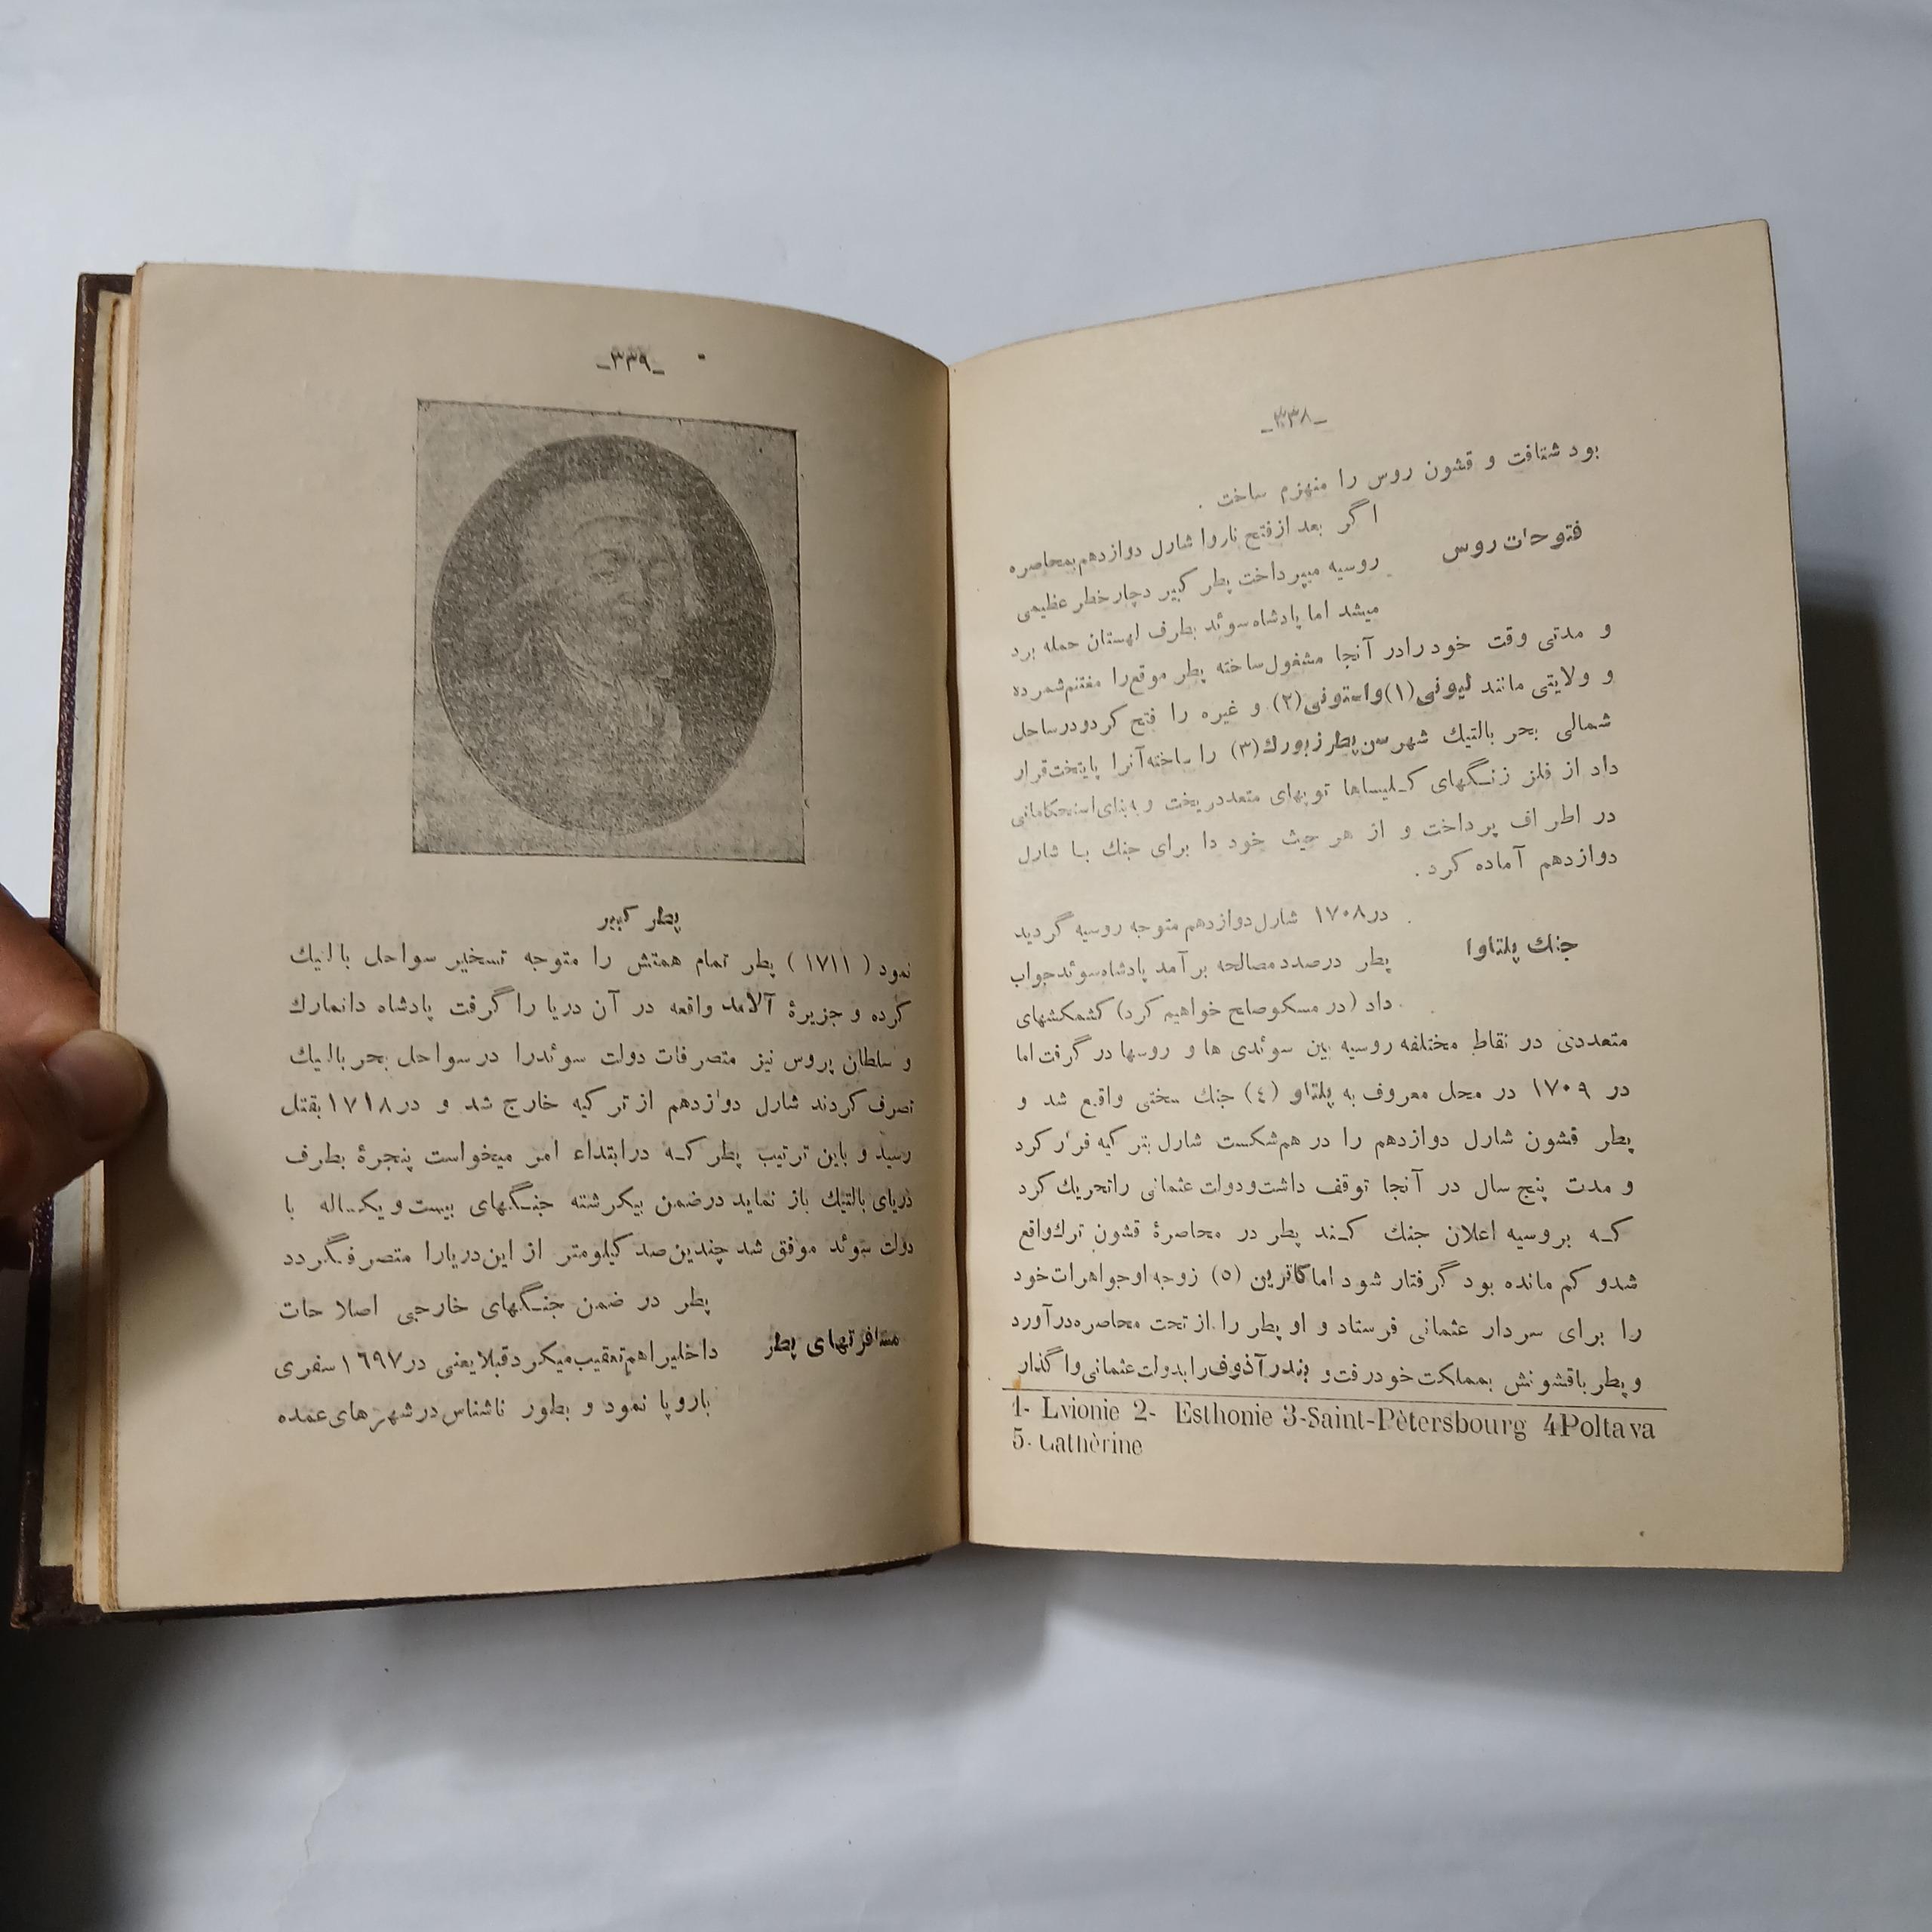 _۳۳۸_
بود شتافت و قشون روس را منهزم ساخت .
فتوحات روس
اگر بعد از فتح ناروا شارل دوازدهم بمحاصره
روسیه میپرداخت پطر کبیر دچار خطر عظیمی
میشد اما پادشاه سوئد بطرف لهستان حمله برد
و مدتی وقت خود را در آنجا مشغول ساخته پطر موقع را مغتنم شمرده
و ولایتی مانند لیونی (۱) و استونی (۲) و غیره را فتح کرد و در ساحل
شمالی بحر بالتیك شهر سن پطرزبورك (۳) را ساخته آنرا پایتخت قرار
داد از فلز زنگهای کلیساها توپهای متعدد ریخت و به بنای استحکاماتی
در اطراف پرداخت و از هر حیث خود دا برای جنك با شارل
دوازدهم آماده کرد .
جنك پلتاوا
در ۱۷۰۸ شارل دوازدهم متوجه روسیه گردید
پطر درصدد مصالحه برآمد پادشاه سوئد جواب
داد (در مسکو صلح خواهیم کرد) کشمکشهای
متعددی در نقاط مختلفه روسیه بین سوئدی ها و روسها در گرفت اما
در ۱۷۰۹ در محل معروف به پلتاو (٤) جنك سختی واقع شد و
پطر قشون شارل دوازدهم را در هم شکست شارل بترکیه فرار کرد
و مدت پنج سال در آنجا توقف داشت و دولت عثمانی را تحریك کرد
که بروسیه اعلان جنك کند پطر در محاصرهٔ قشون ترك واقع
شد و کم مانده بود گرفتار شود اما کاترین (٥) زوجه او جواهرات خود
را برای سردار عثمانی فرستاد و او پطر را از تحت محاصره درآورد
و پطر با قشونش بمملکت خود رفت و بندر آذوف را بدولت عثمانی وا گذار
1- Lvionie 2- Esthonie 3-Saint-Pètersbourg 4Poltava
5- Cathèrine
_۳۳۹_
پطر کبیر
نمود ( ۱۷۱۱ ) پطر تمام همتش را متوجه تسخیر سواحل بالتیك
کرده و جزیرهٔ آلاند واقعه در آن دریا را گرفت پادشاه دانمارك
و سلطان پروس نیز متصرفات دولت سوئد را در سواحل بحر بالتیك
تصرف کردند شارل دوازدهم از ترکیه خارج شد و در ۱۷۱۸ بقتل
رسید و باین ترتیب پطر که در ابتداء امر میخواست پنجرهٔ بطرف
دریای بالتیك باز نماید در ضمن بیکرشته جنگهای بیست و یکساله با
دولت سوئد موفق شد چندین صد کیلومتر از این دریا را متصرف گردد
مسافرتهای پطر
پطر در ضمن جنگهای خارجی اصلاحات
داخلی را هم تعقیب میکرد قبلا یعنی در ۱٦۹۷ سفری
باروپا نمود و بطور ناشناس در شهرهای عمده